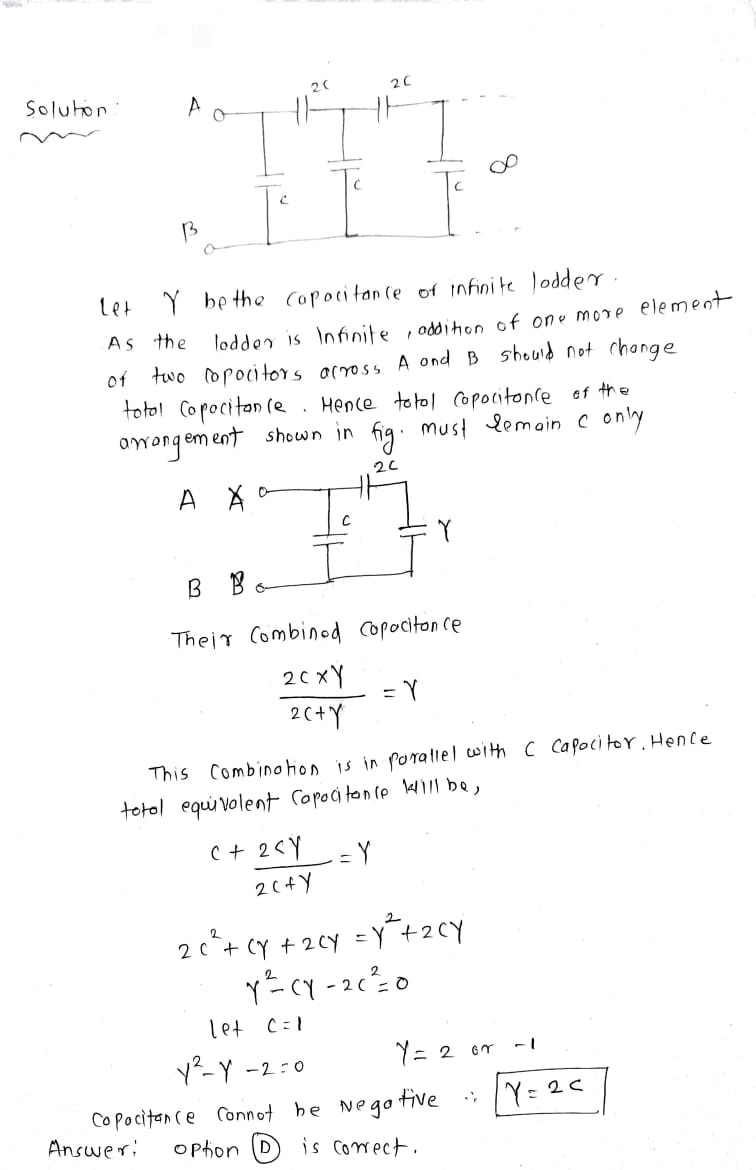 Solution:
A
2C
2C
C
C
C
∞
B
Let Y be the capacitance of infinite ladder.
As the ladder is Infinite, addition of one more element
of two capacitors across A and B should not change
total Capacitance. Hence total Capacitance of the
arrangement shown in fig. must remain C only
A
2C
C
Y
B B
Their Combined Capacitance
2C×Y / 2C+Y = Y
This Combination is in parallel with C Capacitor. Hence
total equivalent Capacitance will be,
C + 2CY / 2C+Y = Y
2C² + CY + 2CY = Y² + 2CY
Y² - CY - 2C² = 0
let C = 1
Y² - Y - 2 = 0 Y = 2 or -1
Capacitance Cannot be Negative ∴ Y = 2C
Answer: Option D is Correct.